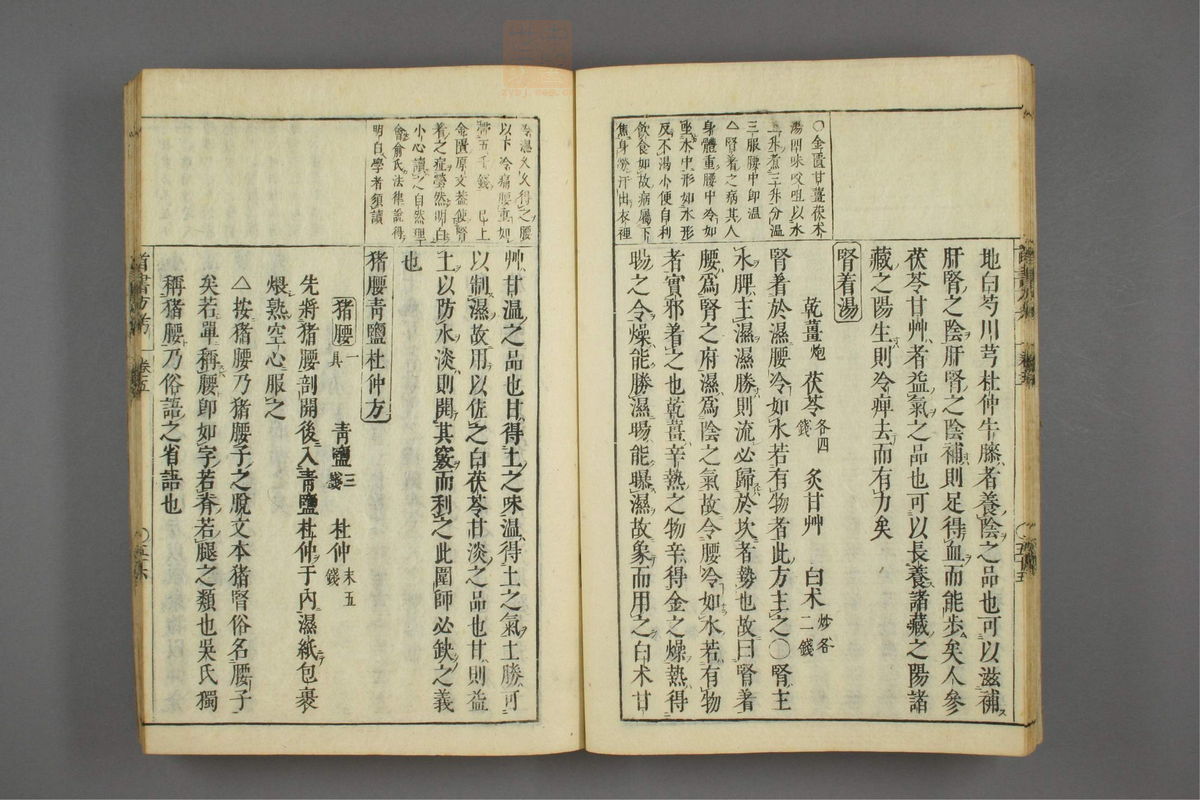 地白芍川芎杜仲牛膝者養陰之品也可以滋補
肝腎之陰肝腎之陰補則足得血而能步矣人參
茯苓甘艸者益氣之品也可以長養諸藏之陽諸
藏之陽生則冷痺去而有力矣
腎着湯
乾薑炮 茯苓各四錢 炙甘艸 白朮炒各二錢
腎着於濕腰冷如水若有物者此方主之〇腎主
水脾主濕濕勝則流必歸於坎者勢也故曰腎着
腰爲腎之府濕爲陰之氣故令腰冷如水若有物
者實邪着之也乾薑辛熱之物辛得金之燥熱得
陽之令燥能勝濕暘能曝濕故象而用之白朮甘
〇金匱甘薑茯朮
湯四味㕮咀以水
三服腰中即温
△腎着之病其人
身體重腰中冷如
坐水中形如水形
反不渴小便自利
飲食如故病屬下
焦身勞汗出衣裡
冷濕久久得之腰
以下冷痛腰重如
帶五千錢 已上
金匱原文蓋使腎
着之症瑩然明白
小心讀之自然理
會俞氏法律說得
明白學者須讀
艸甘温之品也甘得土之味温得土之氣土勝可
以制濕故用以佐之白茯苓甘淡之品也甘則益
土以防水淡則開其竅而利之此圍師必缺之義
也
猪腰青鹽杜仲方
猪腰一具 青鹽三錢 杜仲末五錢
先將猪腰剖開後入青鹽杜仲于內濕紙包裹
煨熟空心服之
△按猪腰乃猪腰子之脫文本猪腎俗名腰子
矣若單稱腰卽如字若脊若腿之類也吳氏獨
稱猪腰乃俗語之省語也
卷五